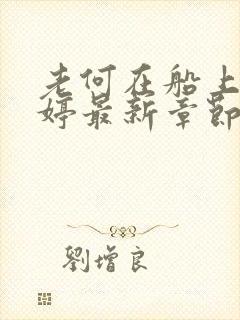 老何在船上
婷最新章節
劉增良